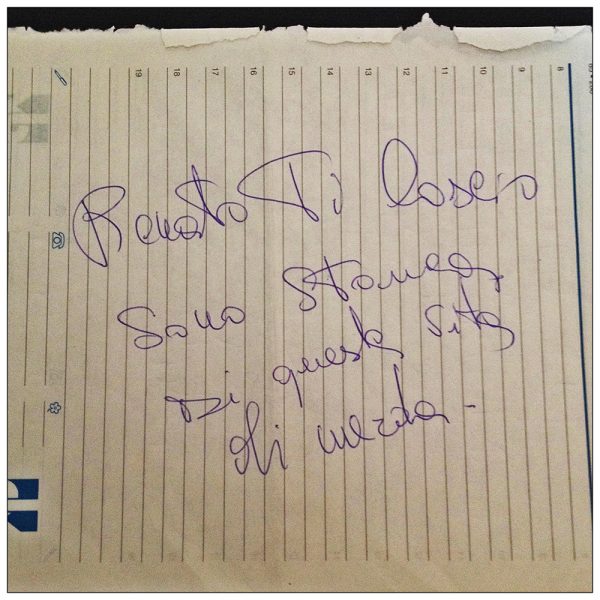 Renato Ti lascio
sono stanca,
Di questa sita
di merda -
8
9
10
11
12
13
14
15
16
17
18
19